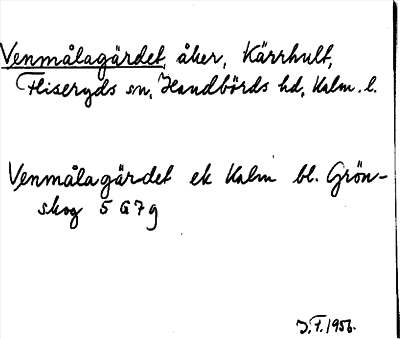 Venmålagärdet, åker, Kärrhult,
Fliseryds sn, Handbörds hd, Kalm. l.
Venmålagärdet ek Kalm bl. Grön-
skog 5 G 7 g
J.F. 1956.